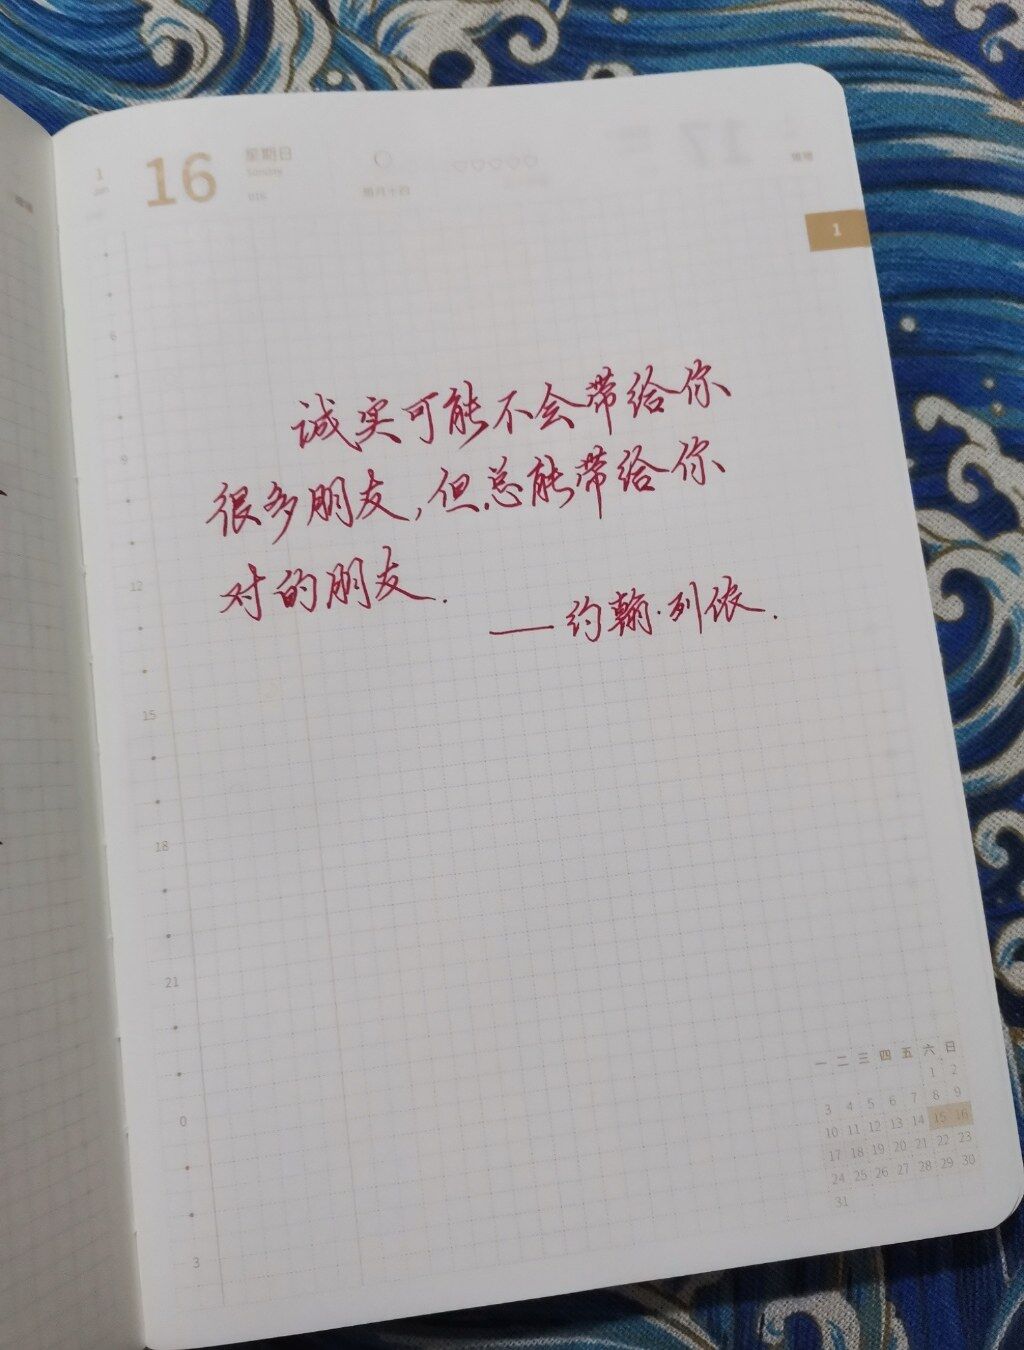 1
16
星期日
Sunday
016
腊月十四
1
诚实可能不会带给你
很多朋友,但总能带给你
对的朋友.
——约翰·列侬.
6
9
12
15
18
21
0
3
一 二 三 四 五 六 日
1 2
3 4 5 6 7 8 9
10 11 12 13 14 15 16
17 18 19 20 21 22 23
24 25 26 27 28 29 30
31